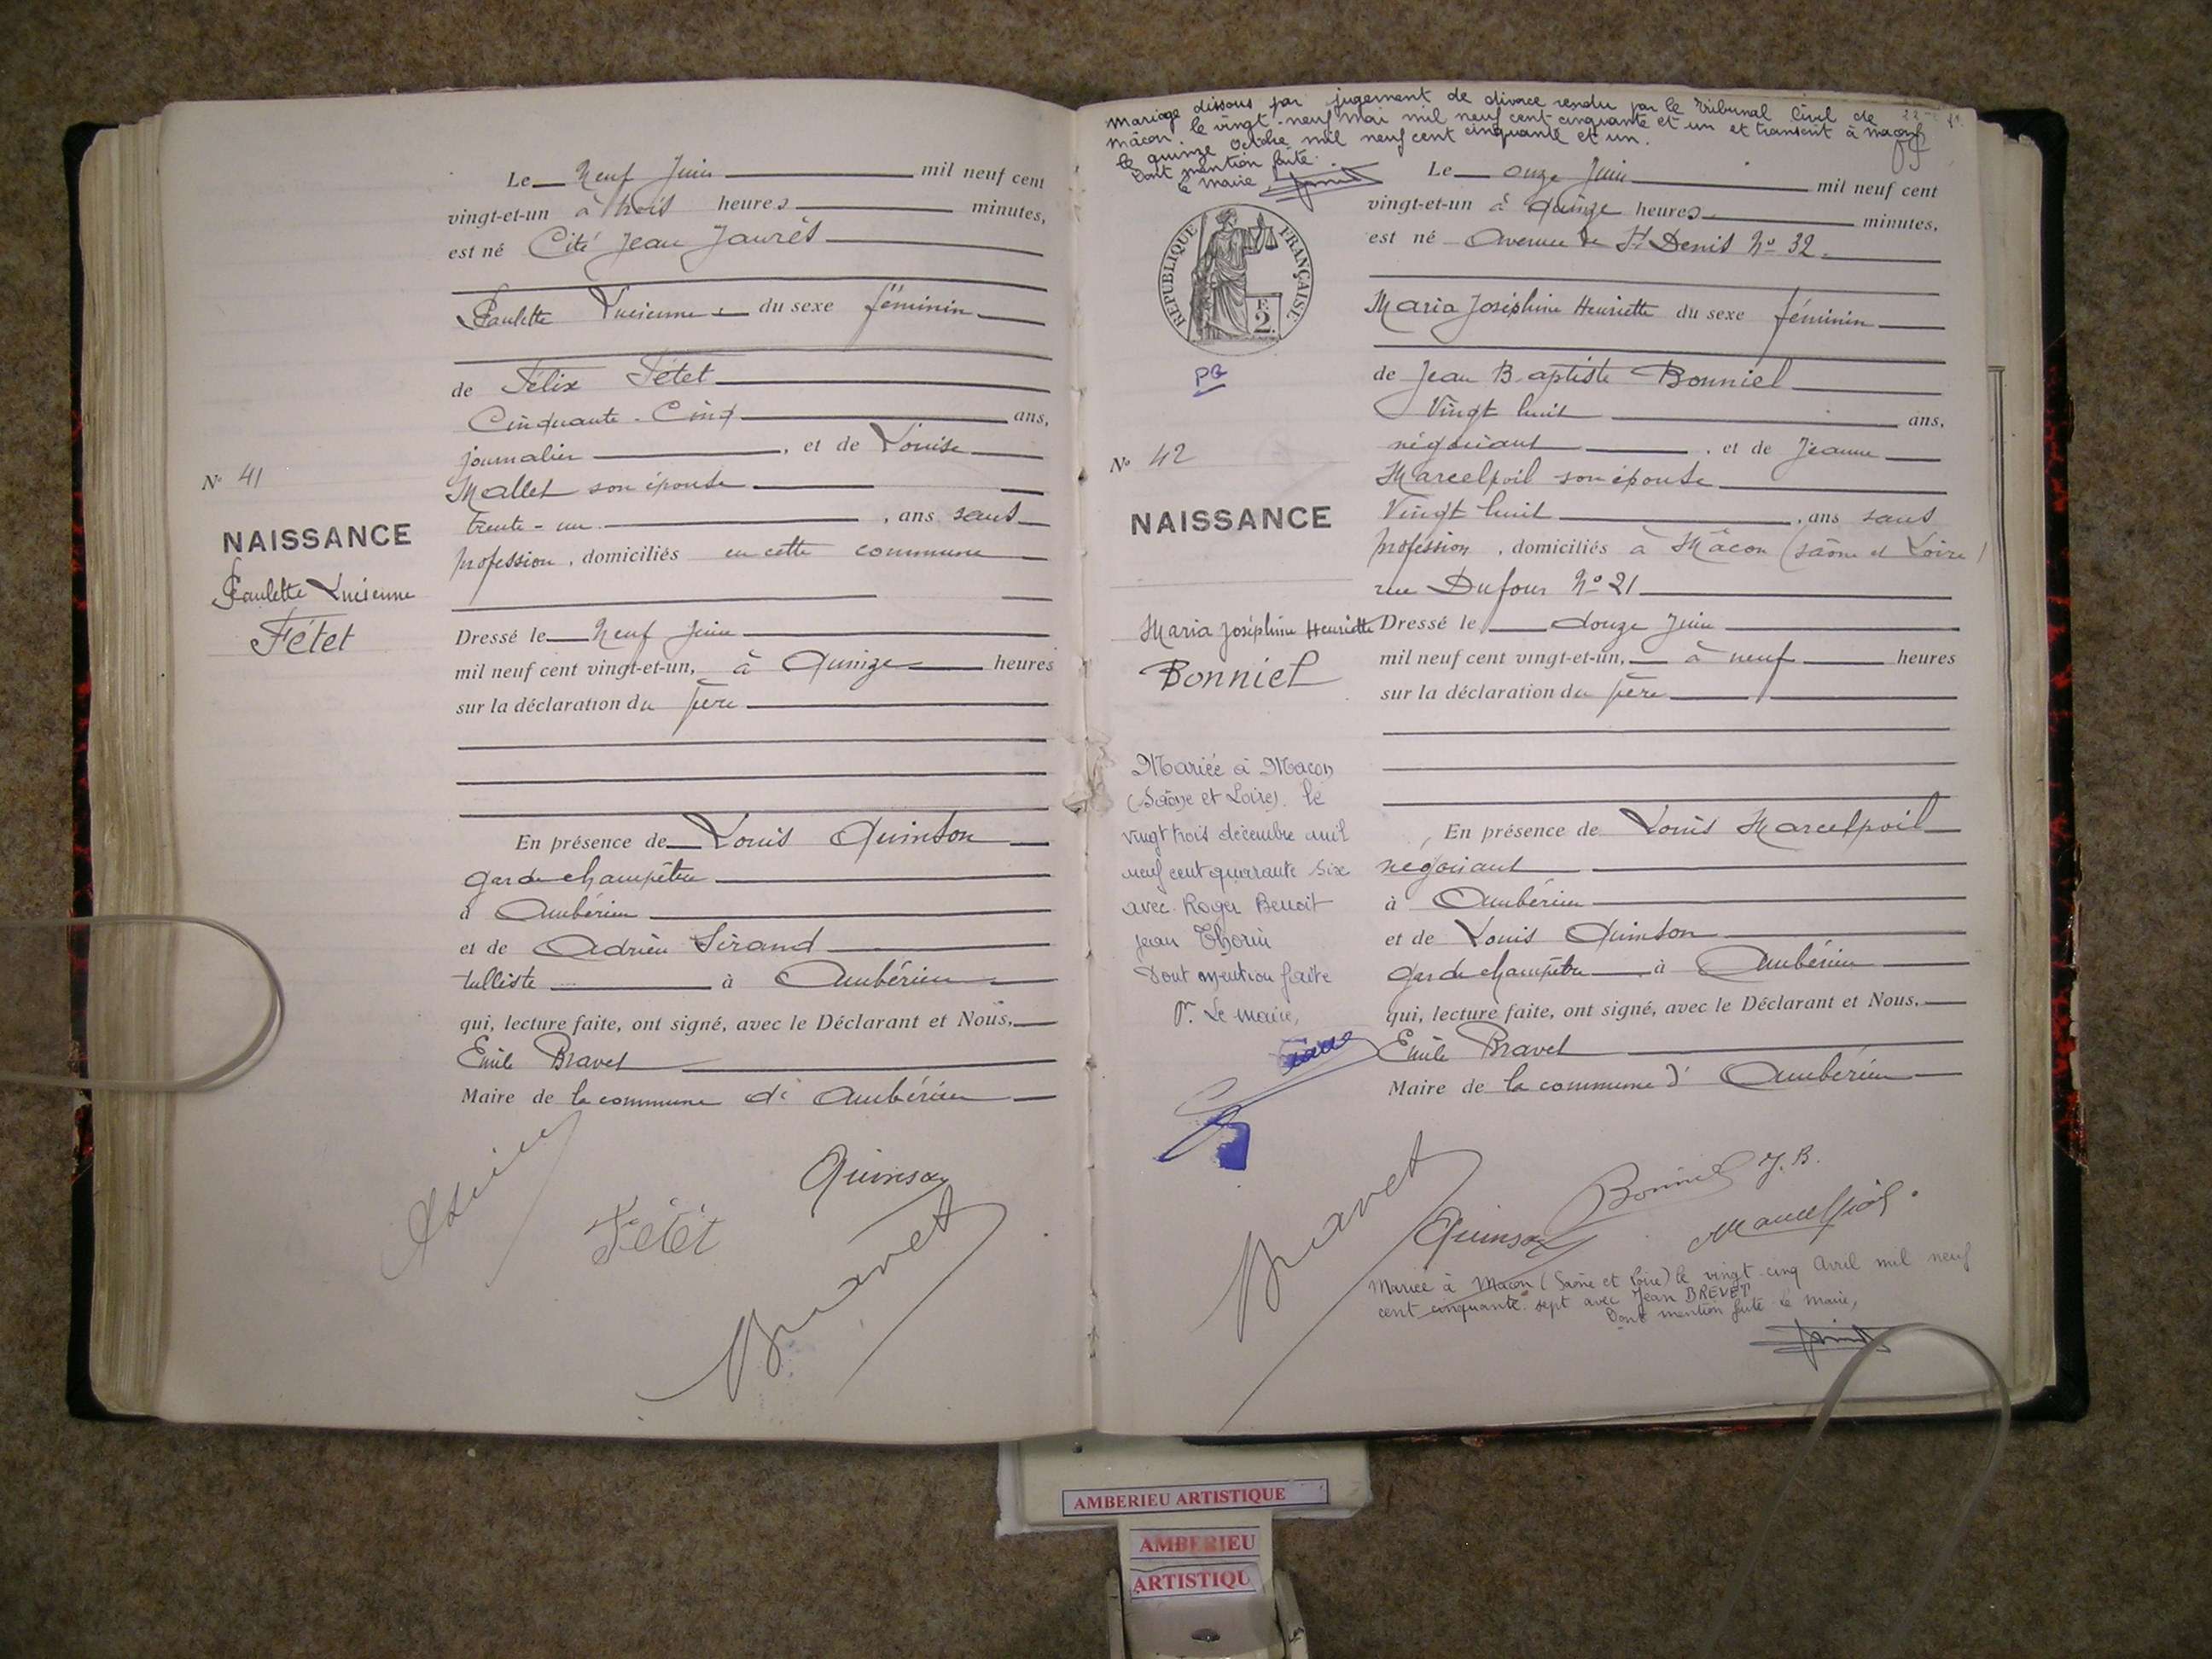 Le neuf Juin mil neuf cent
vingt-et-un à trois heures minutes,
est né Cité Jean Jaurès
Paulette Lucienne du sexe féminin
de Félix Fétet
Cinquante-Cinq ans,
journalier, et de Louise
Mallet son épouse
trente-un, ans sans
profession, domiciliés en cette commune
N° 41
NAISSANCE
Paulette Lucienne
Fétet
Dressé le neuf juin
mil neuf cent vingt-et-un, à Quinze heures
sur la déclaration du père
En présence de Louis Quinson
garde champêtre
à Ambérieu
et de Adrien Sirand
tulliste à Ambérieu
qui, lecture faite, ont signé, avec le Déclarant et Nous,
Emile Bravet
Maire de la commune d' Ambérieu
Quinson
Fétet
Bravet
Mariage dissous par jugement de divorce rendu par le Tribunal Civil de
Mâcon le vingt-neuf Mai mil neuf cent cinquante et un et transcrit à Macon
le quinze Octobre mil neuf cent cinquante et un.
Dont mention faite.
le maire
Le onze Juin mil neuf cent
vingt-et-un à quinze heures minutes,
est né Avenue de St Denis No 32.
RÉPUBLIQUE FRANÇAISE
F.
2.
PG
Maria Joséphine Henriette du sexe féminin
de Jean Baptiste Bonniel
Vingt huit ans,
négociant, et de Jeanne
Marcelpoil son épouse
Vingt huit, ans sans
profession, domiciliés à Mâcon (Saône et Loire)
rue Dufour No 21
No 42
NAISSANCE
Maria Joséphine Henriette
Bonniel
Dressé le douze Juin
mil neuf cent vingt-et-un, à neuf heures
sur la déclaration du père
Mariée à Macon
(Saône et Loire) le
vingt trois décembre mil
neuf cent quarante six
avec Roger Benoit
Jean Thorin
Dont mention faite
Pr. Le maire,
En présence de Louis Marcelpoil
négociant
à Ambérieu
et de Louis Quinson
garde champêtre à Ambérieu
qui, lecture faite, ont signé, avec le Déclarant et Nous,
Emile Bravet
Maire de la commune d' Ambérieu
Bravet
Quinson
Bonniel J. B.
Marcelpoil
Mariée à Macon (Saône et Loire) le vingt cinq Avril mil neuf
cent cinquante sept avec Jean BREVET
Dont mention faite le maire,
AMBERIEU ARTISTIQUE
AMBERIEU
ARTISTIQU